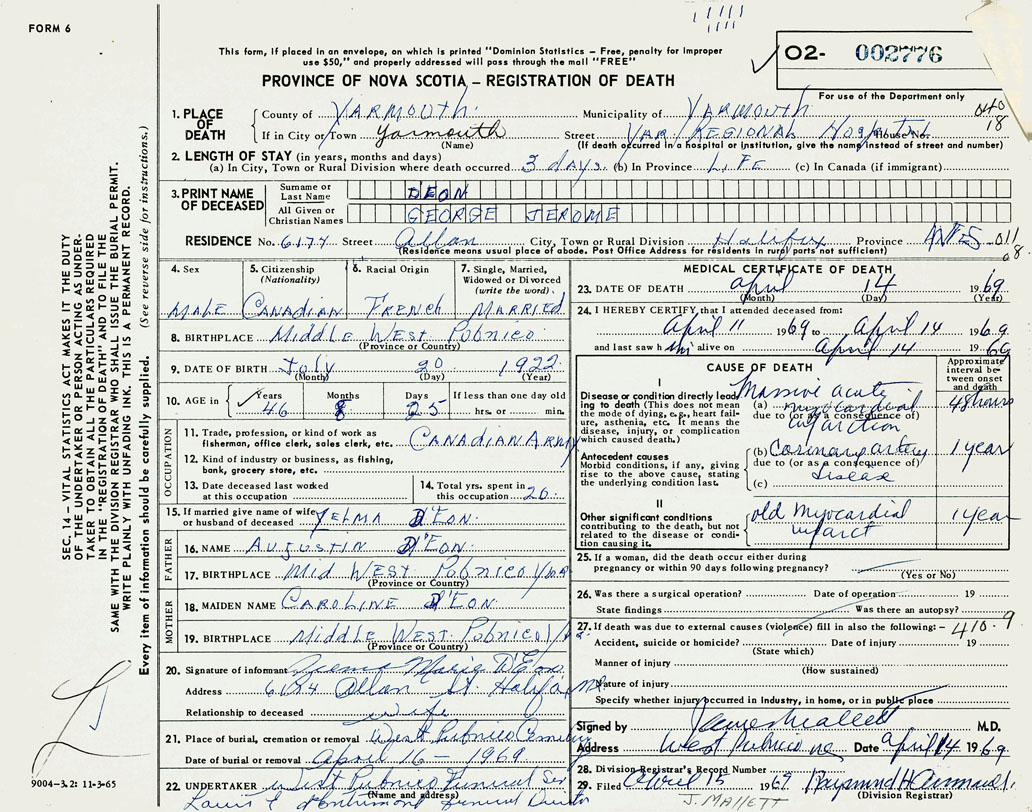 FORM 6
This form, if placed in an envelope, on which is printed "Dominion Statistics – Free, penalty for improper
use $50," and properly addressed will pass through the mail "FREE"
O2- 002776
PROVINCE OF NOVA SCOTIA – REGISTRATION OF DEATH
For use of the Department only
1. PLACE OF DEATH
County of YARMOUTH Municipality of YARMOUTH 040
If in City or Town Yarmouth Street YAR. REGIONAL HOSPITAL House No. 18
(Name) (If death occurred in a hospital or institution, give the name instead of street and number)
2. LENGTH OF STAY (in years, months and days)
(a) In City, Town or Rural Division where death occurred 3 days. (b) in Province LIFE (c) in Canada (if immigrant)
3. PRINT NAME OF DECEASED
Surname or Last Name DEON
All Given or Christian Names GEORGE JEROME
RESIDENCE No. 6174 Street Allan City, Town or Rural Division Halifax Province 011
(Residence means usual place of abode. Post Office Address for residents in rural parts not sufficient) 08
4. Sex 5. Citizenship (Nationality) 6. Racial Origin 7. Single, Married, Widowed or Divorced (write the word)
MALE CANADIAN FRENCH MARRIED
8. BIRTHPLACE Middle West Pubnico
(Province or Country)
9. DATE OF BIRTH July 20 1922
(Month) (Day) (Year)
10. AGE in Years Months Days If less than one day old
46 8 25 hrs. or min.
OCCUPATION
11. Trade, profession, or kind of work as
fisherman, office clerk, sales clerk, etc. CANADIAN ARMY
12. Kind of industry or business, as fishing,
bank, grocery store, etc.
13. Date deceased last worked
at this occupation
14. Total yrs. spent in
this occupation 26
15. If married give name of wife
or husband of deceased D'EON
FATHER
16. NAME AUGUSTIN D'EON
17. BIRTHPLACE Mid WEST Pubnico
(Province or Country)
MOTHER
18. MAIDEN NAME CAROLINE D'EON
19. BIRTHPLACE Middle WEST Pubnico
(Province or Country)
20. Signature of informant Marie D'Eon
Address Allan St Halifax NS
Relationship to deceased wife
21. Place of burial, cremation or removal West Pubnico Cemetery
Date of burial or removal April 16 – 1969
22. UNDERTAKER West Pubnico Funeral Ser
(Name and address)
Louis E d'Entremont Funeral Director
MEDICAL CERTIFICATE OF DEATH
23. DATE OF DEATH April 14 1969
(Month) (Day) (Year)
24. I HEREBY CERTIFY, that I attended deceased from:
April 11 1969 to April 14 1969
and last saw him alive on April 14 1969
CAUSE OF DEATH
Approximate interval between onset and death
I
Disease or condition directly leading to death (This does not
mean the mode of dying, e.g., heart failure, asthenia, etc. It means the
disease, injury, or complication
which caused death.)
(a) Massive acute myocardial infarction 48 hours
due to (or as a consequence of)
Antecedent causes
Morbid conditions, if any, giving
rise to the above cause, stating
the underlying condition last.
(b) Coronary artery disease 1 year
due to (or as a consequence of)
(c)
II
Other significant conditions
contributing to the death, but not
related to the disease or condition
causing it.
old myocardial infarct 1 year
25. If a woman, did the death occur either during
pregnancy or within 90 days following pregnancy?
(Yes or No)
26. Was there a surgical operation? Date of operation 19
State findings Was there an autopsy?
27. If death was due to external causes (violence) fill in also the following:– 410.9
Accident, suicide or homicide? Date of injury 19
(State which)
Manner of injury
(How sustained)
Nature of injury
Specify whether injury occurred in Industry, in home, or in public place
Signed by James Mallett M.D.
Address West Pubnico NS Date April 14 1969
28. Division Registrar's Record Number
29. Filed April 15 1969 Raymond H.
(Division Registrar)
J. MALLETT
SEC. 14 – VITAL STATISTICS ACT MAKES IT THE DUTY
OF THE UNDERTAKER OR PERSON ACTING AS UNDER-
TAKER TO OBTAIN ALL THE PARTICULARS REQUIRED
IN THE "REGISTRATION OF DEATH" AND TO FILE THE
SAME WITH THE DIVISION REGISTRAR WHO SHALL ISSUE THE BURIAL PERMIT.
WRITE PLAINLY WITH UNFADING INK. THIS IS A PERMANENT RECORD.
Every item of information should be carefully supplied. (See reverse side for instructions.)
9004–3.2: 11-3-65